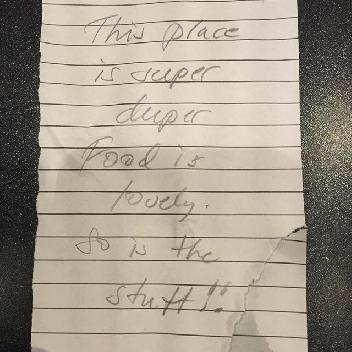 This place
is super
duper
Food is
lovely.
So is the
stuff!!